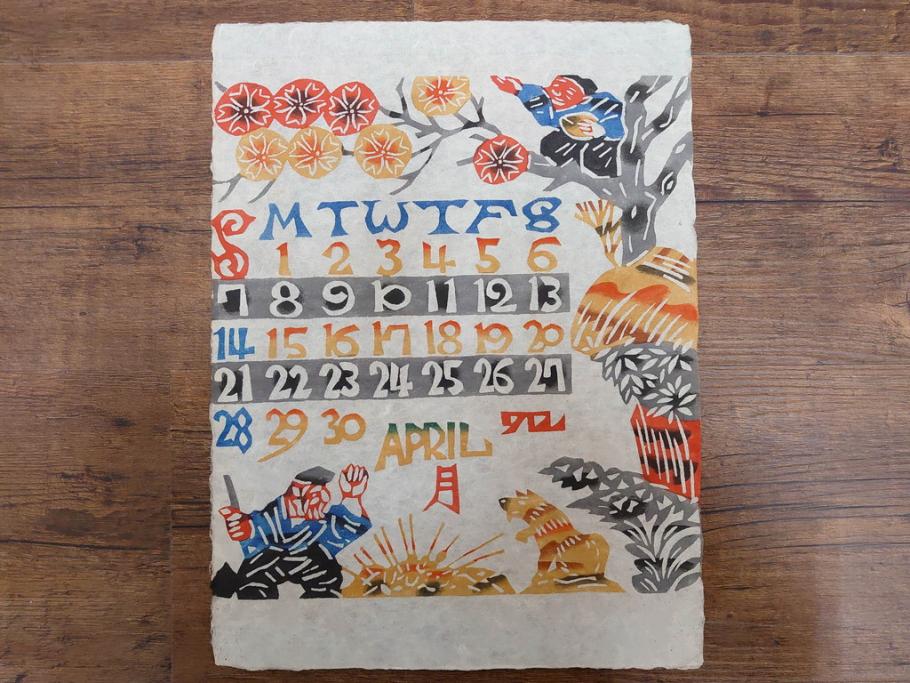 S M T W T F S
1 2 3 4 5 6
7 8 9 10 11 12 13
14 15 16 17 18 19 20
21 22 23 24 25 26 27
28 29 30
APRIL
四
月